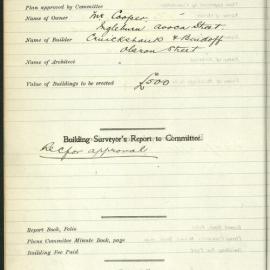 Plan approved by Committee
Name of Owner Mr Cooper
Ingleburn Avoca Street
Name of Builder Cruickshank & Bindoff
Oberon Street
Name of Architect
Value of Buildings to be erected £500
Building Surveyor's Report to Committee
Rec for approval
Report Book, Folio
Plans Committee Minute Book, page
Building Fee Paid